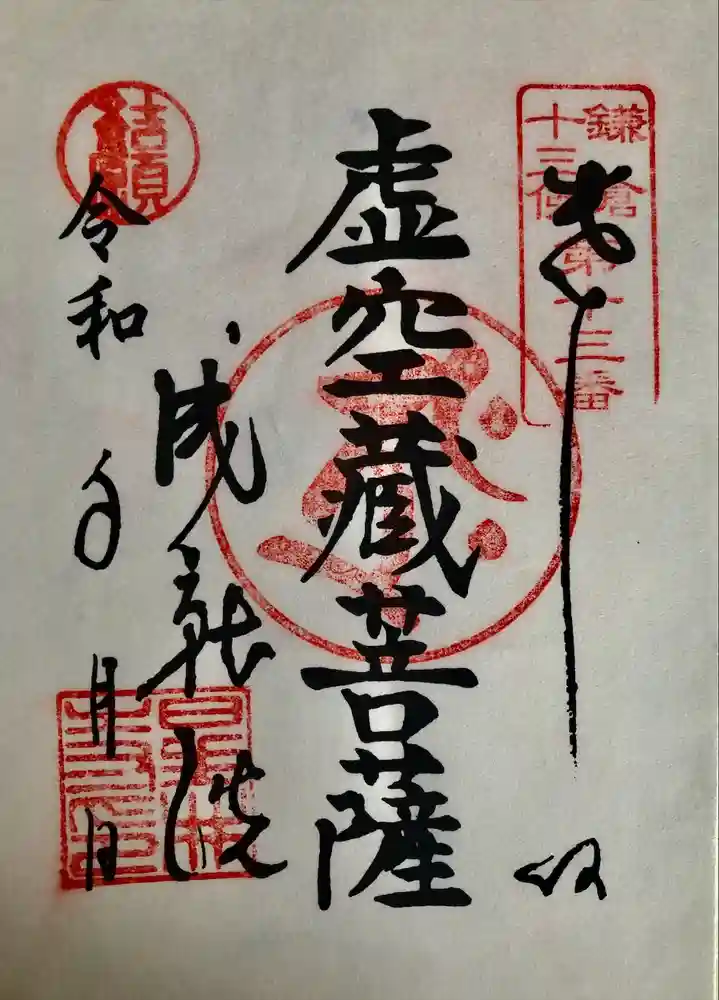 鎌倉
十三仏
第十三番
奉拝
虚空蔵菩薩
成就院
結願
令和 年 月 日